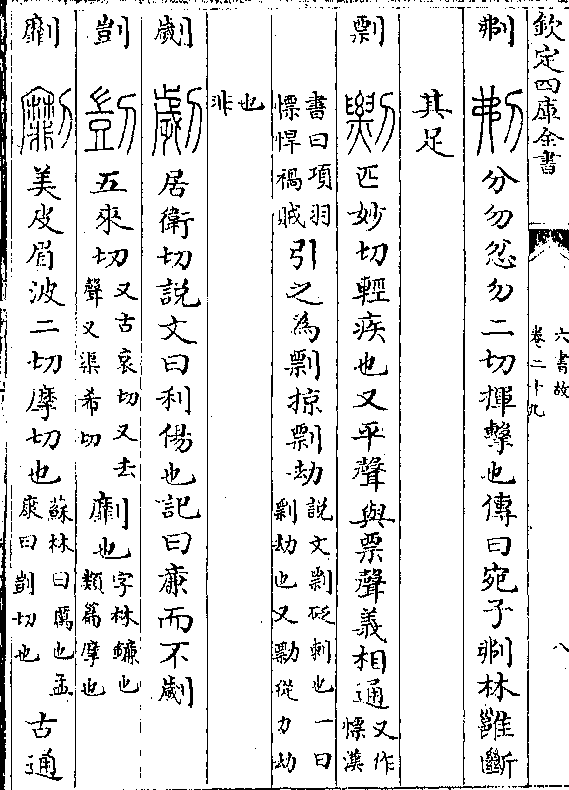 欽定四庫全書
六書故
卷二十九
八
刜 分勿忿勿二切揮擊也傳曰宛子刜林雝斷
其足
剽 匹妙切輕疾也又平聲與票聲義相通又作慓漢
書曰項羽慓悍禍賊引之為剽掠剽劫說文剽砭刺也一曰剽劫也又勡從力劫
也非
劌 居衛切說文曰利傷也記曰廉而不劌
剴 五來切又古哀切又去聲又渠希切劘也字林鐮也類篇摩也
劘 美皮眉波二切摩切也蘇林曰厲也孟康曰剴切也古通